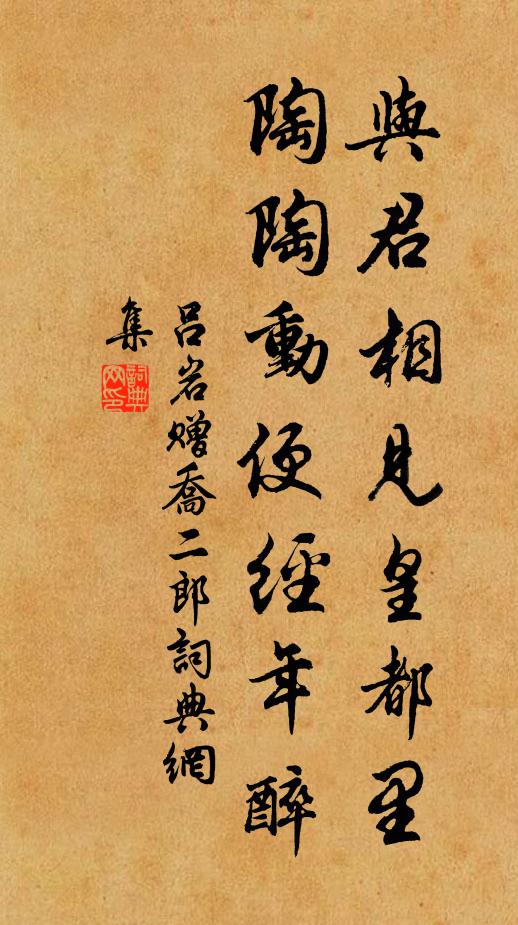 與君相見皇都里
陶陶動便經年醉
呂岩贈喬二郎詞典網
集
詞典網印